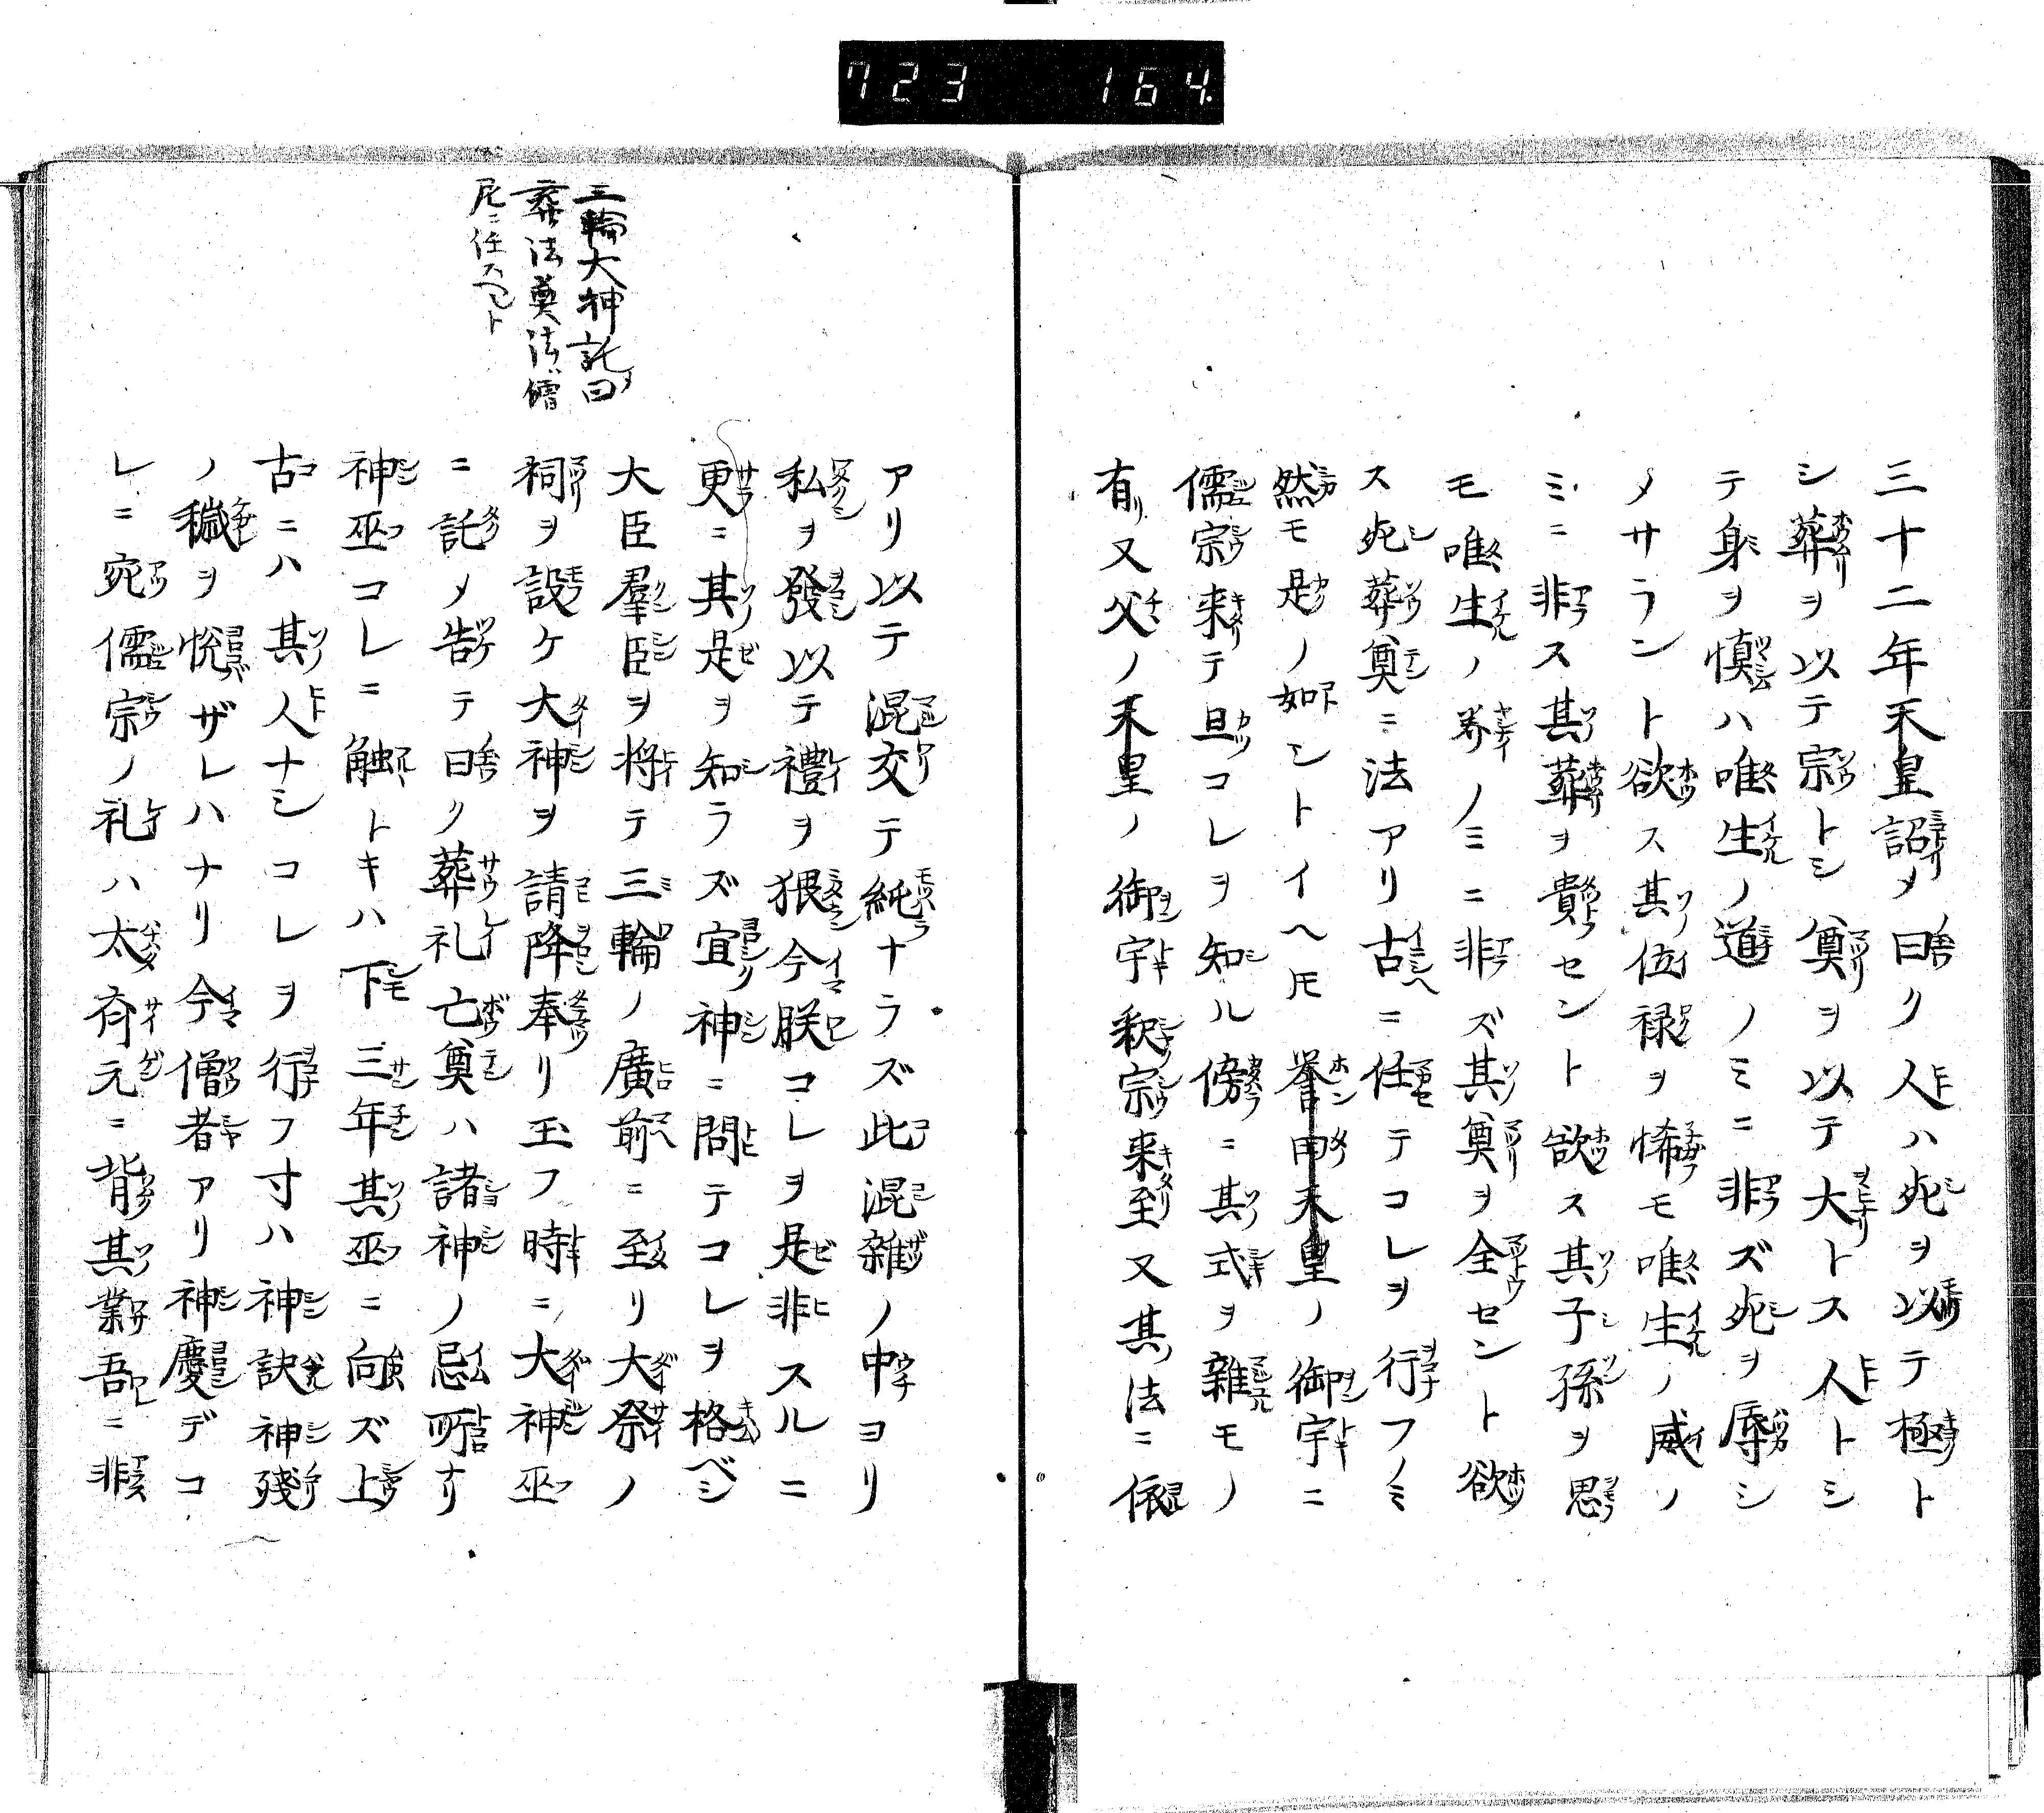 723 164.
三十二年天皇詔メ曰ク人ハ死ヲ以テ極ト
シ葬ヲ以テ宗トシ奠ヲ以テ大トス人トシ
テ身ヲ慎ハ唯生ノ道ノミニ非ズ死ヲ辱シ
メサラント欲ス其位禄ヲ悕モ唯生ノ威ノ
ミニ非ス其葬ヲ貴セント欲ス其子孫ヲ思
モ唯生ノ养ノミニ非ズ其奠ヲ全セント欲
ス死葬奠ニ法アリ古ニ任テコレヲ行フノミ
然モ是ノ如シトイヘ𪜈誉田天皇ノ御宇ニ
儒宗来テ且コレヲ知ル傍ニ其式ヲ雜モノ
有リ又父ノ天皇ノ御宇釈宗来至又其法ニ依
三輪大神託曰
葬法奠法ハ僧
尼ニ任スヘシト
アリ以テ混交テ純ナラズ此混雜ノ中ヨリ
私ヲ發以テ禮ヲ猥今朕コレヲ是非スルニ
更ニ其是ヲ知ラズ宜神ニ問テコレヲ格ベシ
大臣羣臣ヲ将テ三輪ノ廣前ニ至リ大祭ノ
祠ヲ設ケ大神ヲ請降奉リ玉フ時ニ大神巫
ニ託メ告テ曰ク葬礼亡奠ハ諸神ノ忌所ナリ
神巫コレニ触トキハ下三年其巫ニ向ズ上
古ニハ其人ナシコレヲ行フ寸ハ神訣神殘
ノ穢ヲ悦ザレハナリ今僧者アリ神慶デコ
レニ宛儒宗ノ礼ハ太斉元ニ背其業吾ニ非